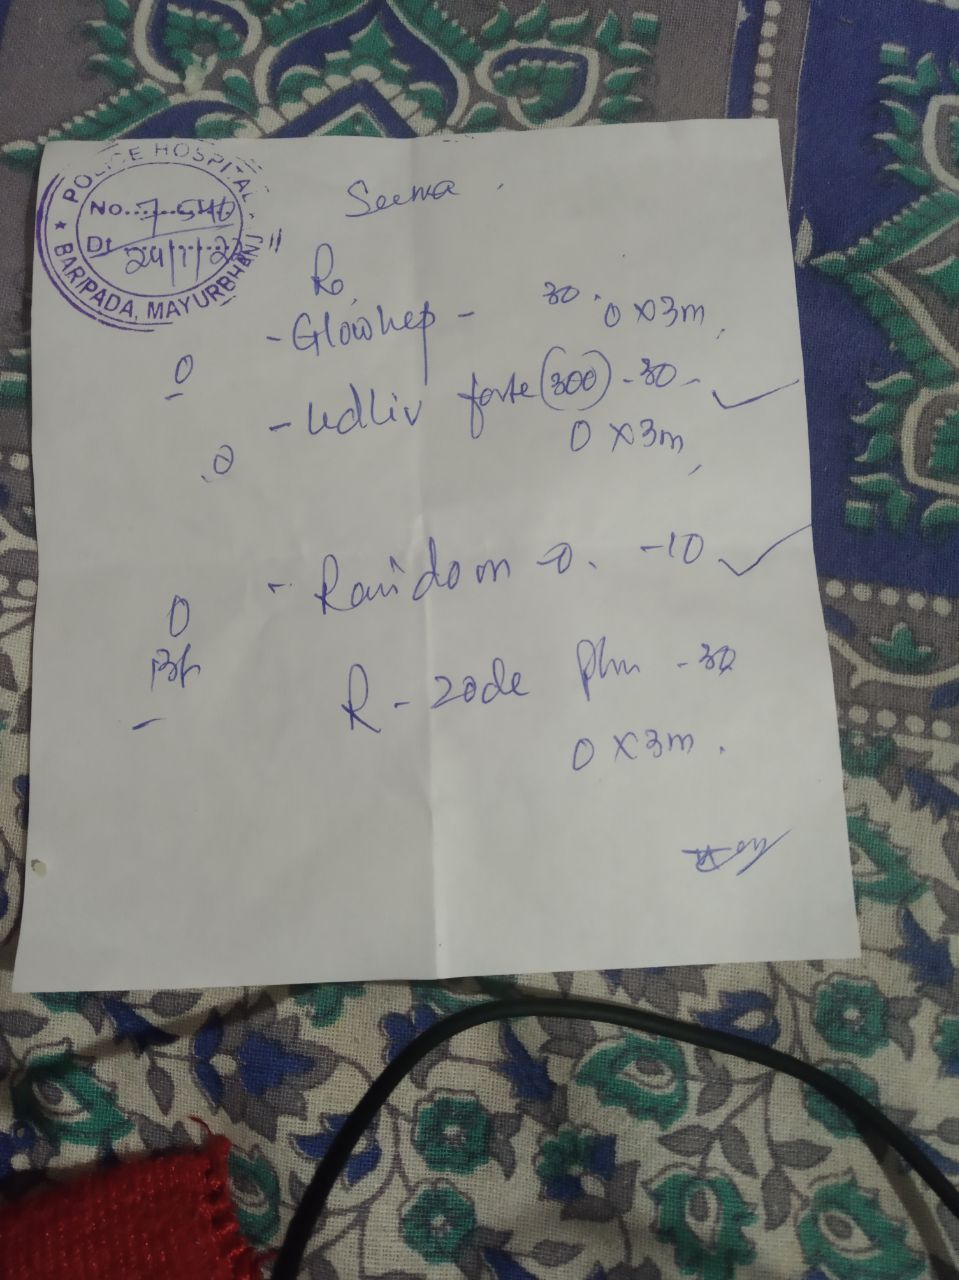 POLICE HOSPITAL
No...7546
Dt 24/11/22
BARIPADA, MAYURBHANJ
Seema
R
- Glowhep - 30.
0 x 3m,
0
- Udliv forte (300) - 30 -
0 x 3m,
0
- Random -0. -10
0
R - zode Plm - 30
0 x 3m.